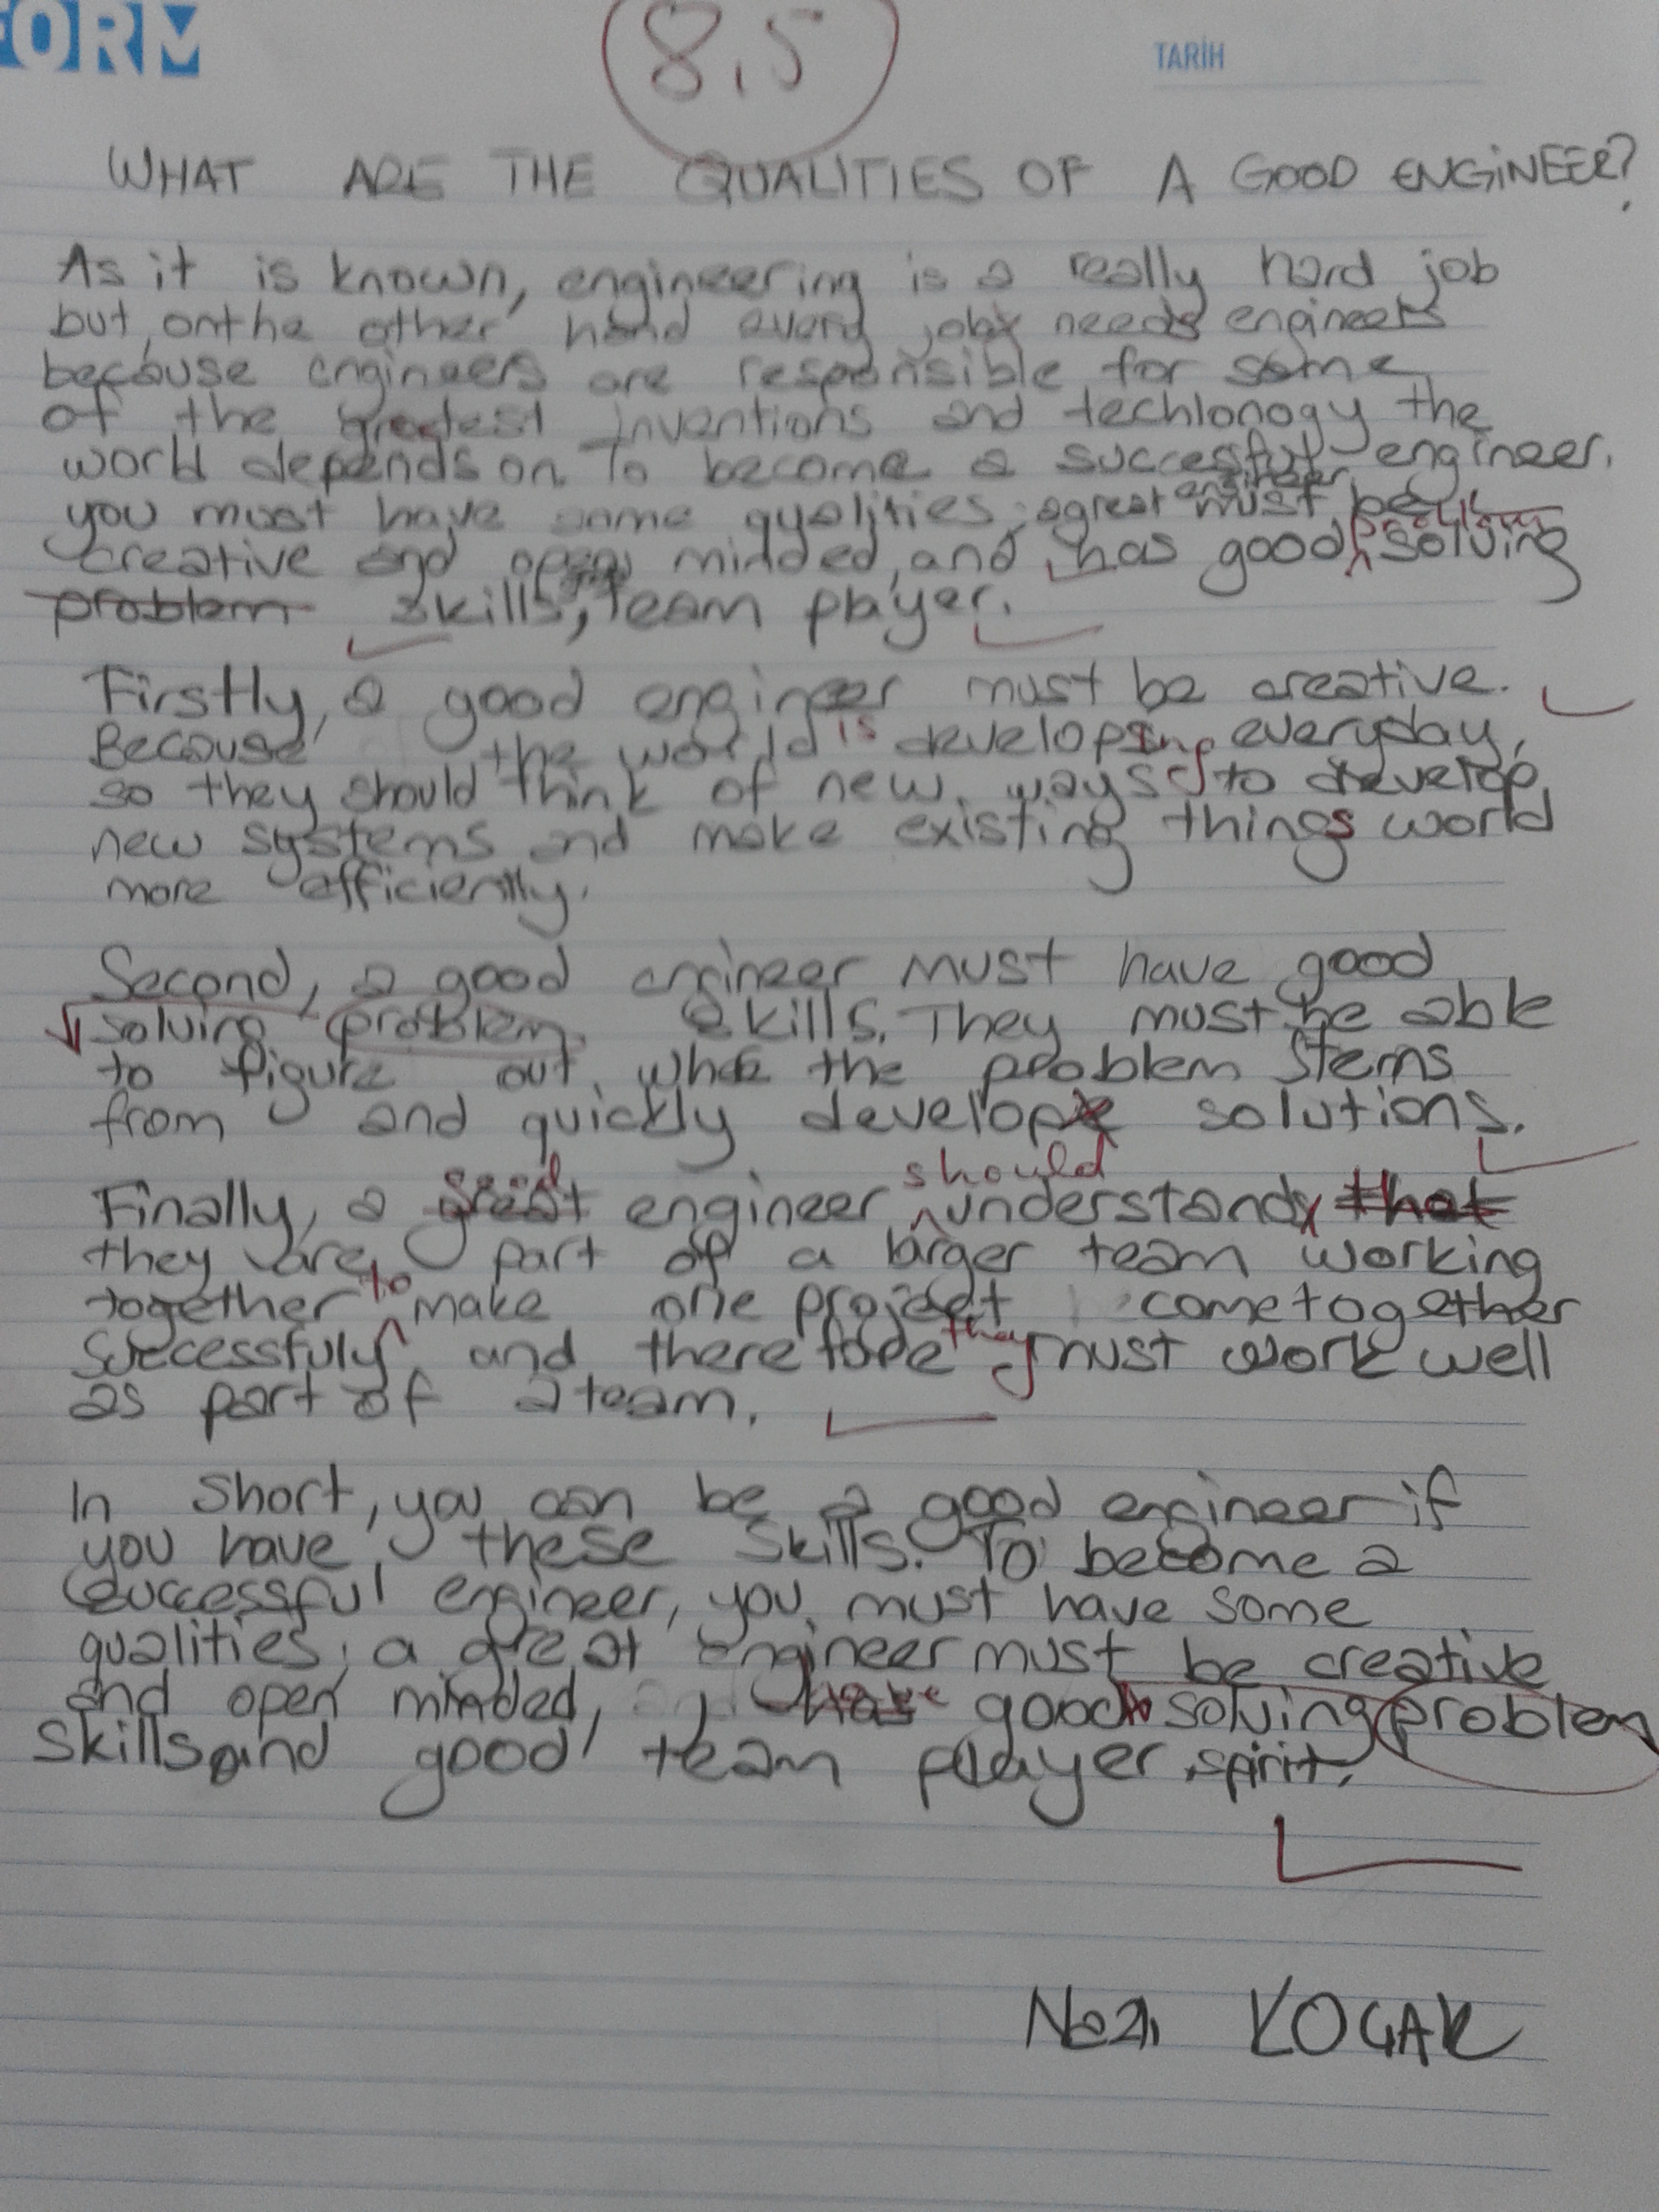 FORM
8,5
TARİH
WHAT ARE THE QUALITIES OF A GOOD ENGİNEER?
As it is known, engineering is a really hard job
but, onthe other hand every job needs engineers
because engineers are responsible for some
of the greatest inventions and techlonogy the
world depends on. To become a successful engineer.
you must have some qualities; agreat engineer must be
creative and open minded, and has good problem solving
problem skills, team player.
Firstly, a good engineer must be creative.
Because the world is developing everyday,
so they should think of new ways to develop
new systems and make existing things world
more efficiently.
Second, a good engineer must have good
solving problem skills. They must be able
to figure out the problem stems
from and quickly develope solutions.
Finally, a great good engineer should understands that
they are part of a larger team working
together to make one project come together
successfuly and therefore they must work well
as part of a team.
In short, you can be a good engineer if
you have these skills. To become a
successful engineer, you must have some
qualities; a great engineer must be creative
and open minded, has have good solving problem
skills and good team player spirit.
KOÇAK